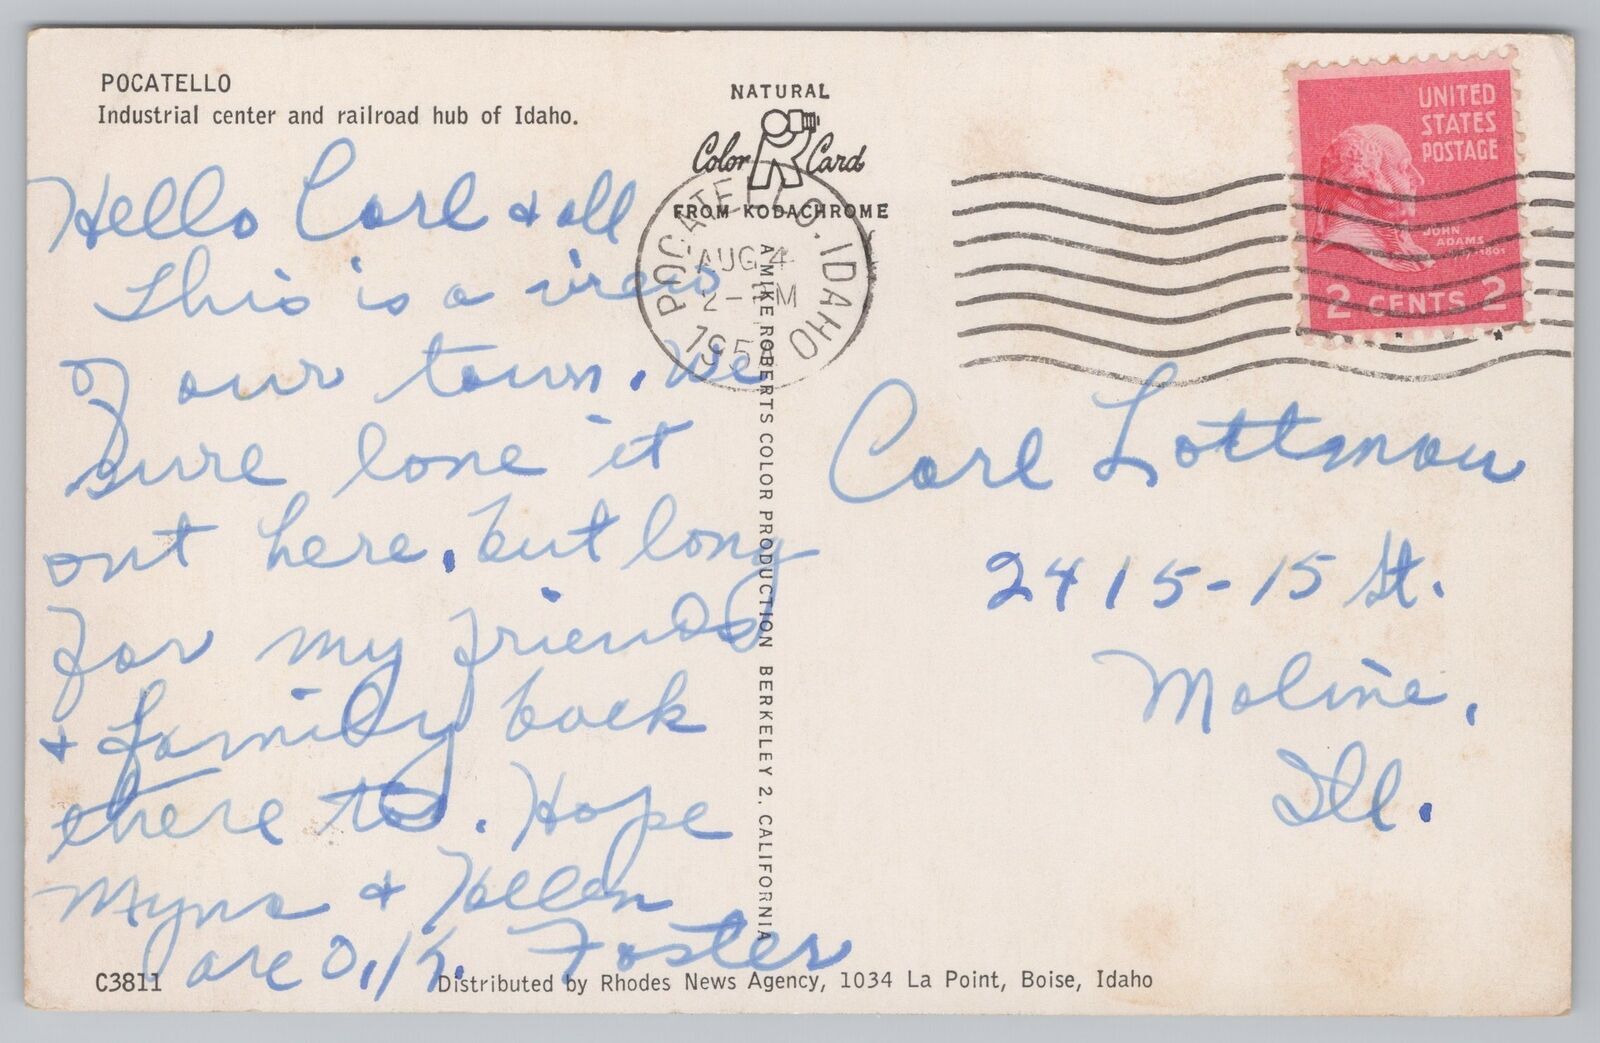 POCATELLO
Industrial center and railroad hub of Idaho.
NATURAL
Color Card
FROM KODACHROME
POCATELLO, IDAHO
AUG 4
2 - PM
195
UNITED
STATES
POSTAGE
JOHN
ADAMS
2 CENTS 2
Hello Carl & all
This is a view
of our town. We
sure love it
out here, but long
for my friends
& family back
there too. Hope
Myna & Hellen
are O.K. Foster
Carl Lottman
2415-15 St.
Moline,
Ill.
A MIKE ROBERTS COLOR PRODUCTION BERKELEY 2, CALIFORNIA
C3811
Distributed by Rhodes News Agency, 1034 La Point, Boise, Idaho